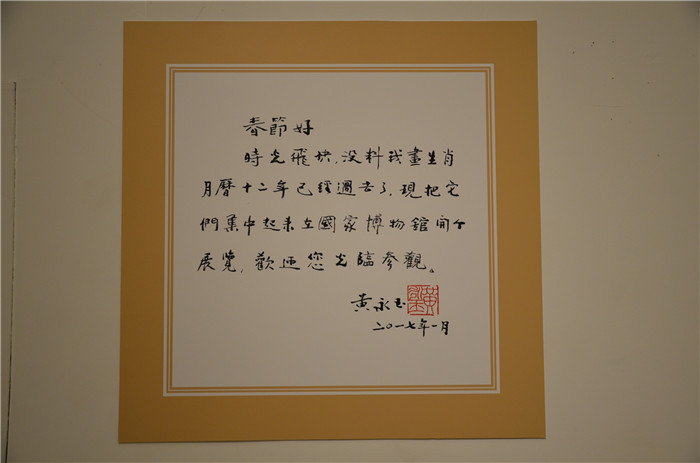 春節好
時光飛快,没料我畫生肖
月曆十二年已經過去了,現把它
們集中起来在國家博物館開个
展覽,歡迎您光臨参觀。
黄永玉
二〇一七年一月